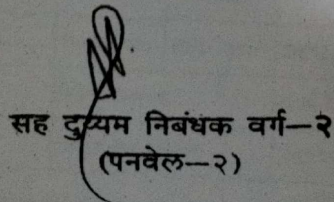 सह दुय्यम निबंधक वर्ग—२
(पनवेल—२)